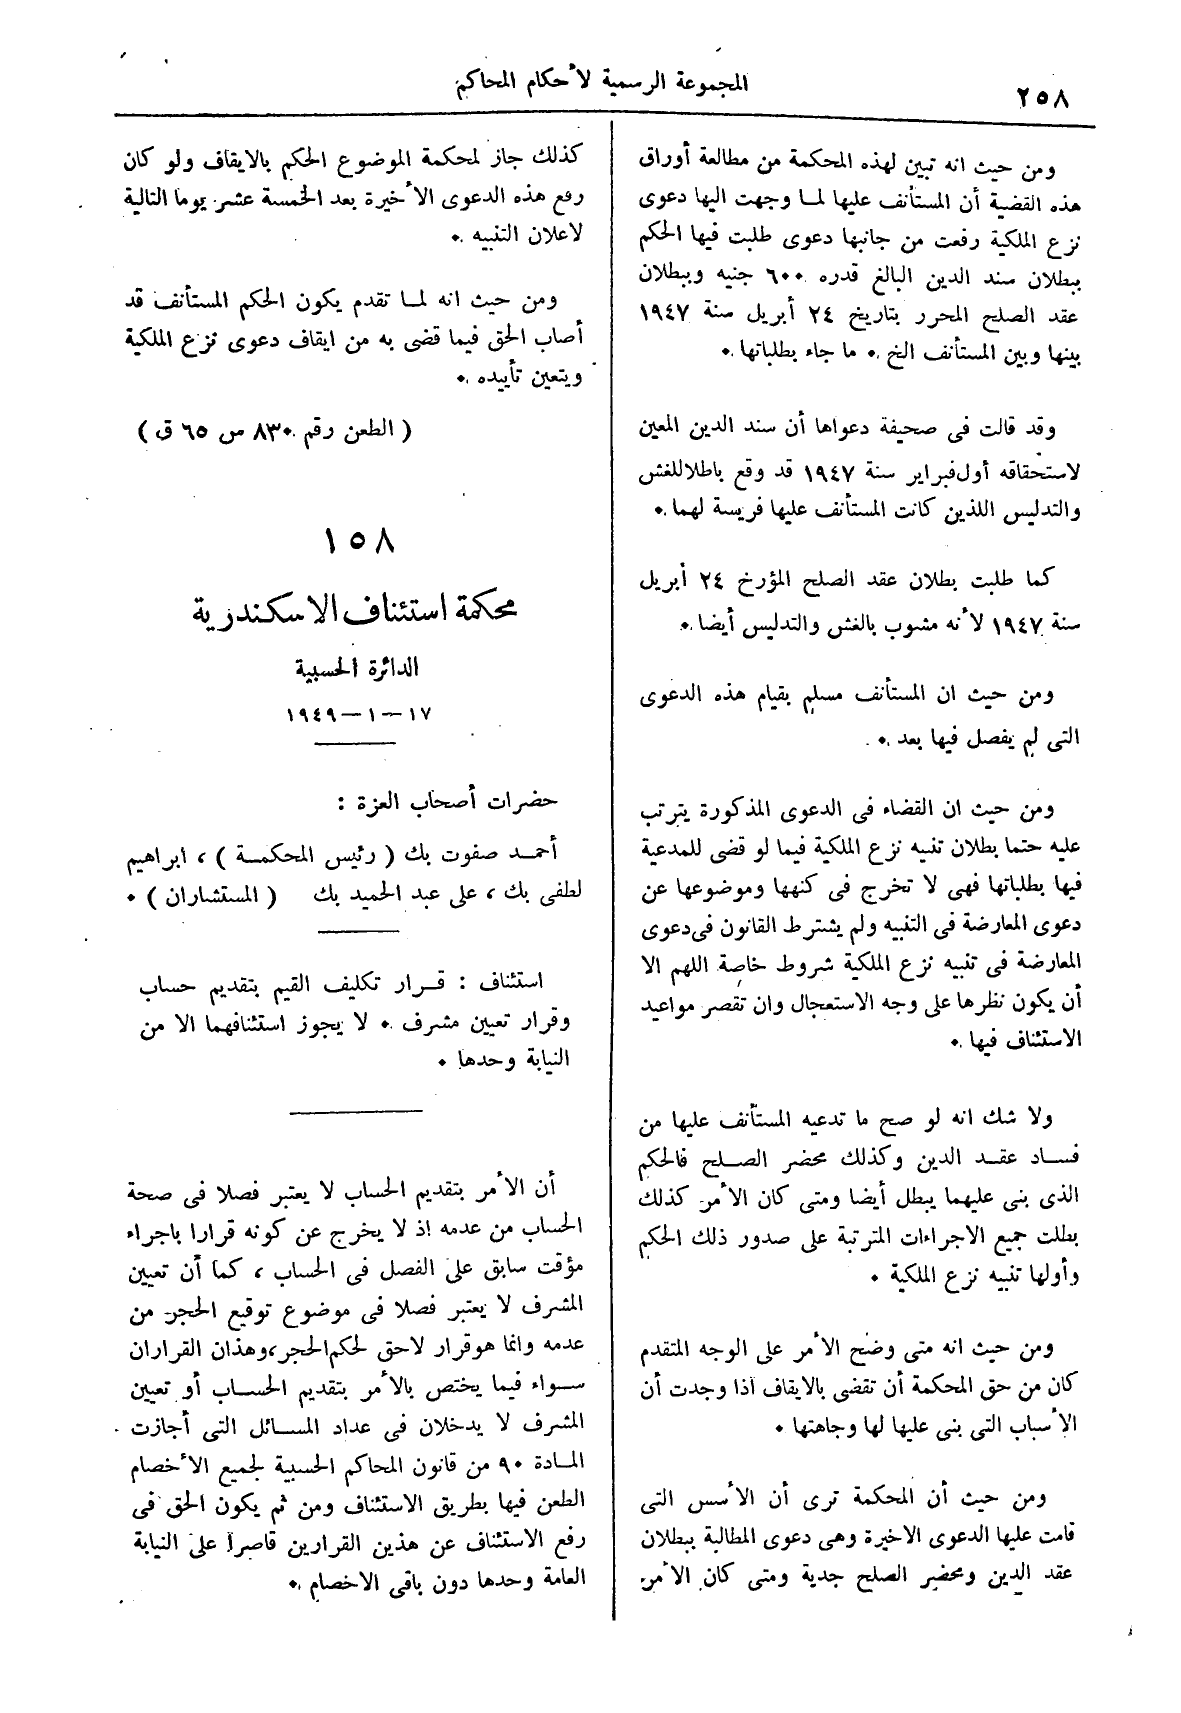 ٢٥٨
المجموعة الرسمية لأحكام المحاكم
ومن حيث انه تبين لهذه المحكمة من مطالعة أوراق
هذه القضية أن المستأنف عليها لما وجهت اليها دعوى
نزع الملكية رفعت من جانبها دعوى طلبت فيها الحكم
ببطلان سند الدين البالغ قدره ٦٠٠ جنيه وببطلان
عقد الصلح المحرر بتاريخ ٢٤ أبريل سنة ١٩٤٧
بينها وبين المستأنف الخ ٠ ما جاء بطلباتها ٠
وقد قالت فى صحيفة دعواها أن سند الدين المعين
لاستحقاقه أول فبراير سنة ١٩٤٧ قد وقع باطلا للغش
والتدليس اللذين كانت المستأنف عليها فريسة لهما ٠
كما طلبت بطلان عقد الصلح المؤرخ ٢٤ أبريل
سنة ١٩٤٧ لأنه مشوب بالغش والتدليس أيضا ٠
ومن حيث ان المستأنف مسلم بقيام هذه الدعوى
التى لم يفصل فيها بعد ٠
ومن حيث ان القضاء فى الدعوى المذكورة يترتب
عليه حتما بطلان تنبيه نزع الملكية فيما لو قضى للمدعية
فيها بطلباتها فهى لا تخرج فى كنهها وموضوعها عن
دعوى المعارضة فى التنبيه ولم يشترط القانون فى دعوى
المعارضة فى تنبيه نزع الملكية شروط خاصة اللهم الا
أن يكون نظرها على وجه الاستعجال وان تقصر مواعيد
الاستئناف فيها ٠
ولا شك انه لو صح ما تدعيه المستأنف عليها من
فساد عقد الدين وكذلك محضر الصلح فالحكم
الذى بنى عليهما يبطل أيضا ومتى كان الأمر كذلك
بطلت جميع الاجراءات المترتبة على صدور ذلك الحكم
وأولها تنبيه نزع الملكية ٠
ومن حيث انه متى وضح الأمر على الوجه المتقدم
كان من حق المحكمة أن تقضى بالايقاف اذا وجدت أن
الأسباب التى بنى عليها لها وجاهتها ٠
ومن حيث أن المحكمة ترى أن الأسس التى
قامت عليها الدعوى الاخيرة وهى دعوى المطالبة ببطلان
عقد الدين ومحضر الصلح جدية ومتى كان الأمر
كذلك جاز لمحكمة الموضوع الحكم بالايقاف ولو كان
رفع هذه الدعوى الأخيرة بعد الخمسة عشر يوما التالية
لاعلان التنبيه ٠
ومن حيث انه لما تقدم يكون الحكم المستأنف قد
أصاب الحق فيما قضى به من ايقاف دعوى نزع الملكية
ويتعين تأييده ٠
( الطعن رقم ٨٣٠ س ٦٥ ق )
١٥٨
محكمة استئناف الاسكندرية
الدائرة الحسبية
١٧ - ١ - ١٩٤٩
حضرات أصحاب العزة :
أحمد صفوت بك ( رئيس المحكمة ) ، ابراهيم
لطفى بك ، على عبد الحميد بك ( المستشاران ) ٠
استئناف : قرار تكليف القيم بتقديم حساب
وقرار تعيين مشرف ٠ لا يجوز استئنافهما الا من
النيابة وحدها ٠
أن الأمر بتقديم الحساب لا يعتبر فصلا فى صحة
الحساب من عدمه اذ لا يخرج عن كونه قرارا باجراء
مؤقت سابق على الفصل فى الحساب ، كما أن تعيين
المشرف لا يعتبر فصلا فى موضوع توقيع الحجر من
عدمه وانما هو قرار لاحق لحكم الحجر، وهذان القراران
سواء فيما يختص بالأمر بتقديم الحساب أو تعيين
المشرف لا يدخلان فى عداد المسائل التى أجازت
المادة ٩٠ من قانون المحاكم الحسبية لجميع الأخصام
الطعن فيها بطريق الاستئناف ومن ثم يكون الحق فى
رفع الاستئناف عن هذين القرارين قاصرا على النيابة
العامة وحدها دون باقى الاخصام ٠